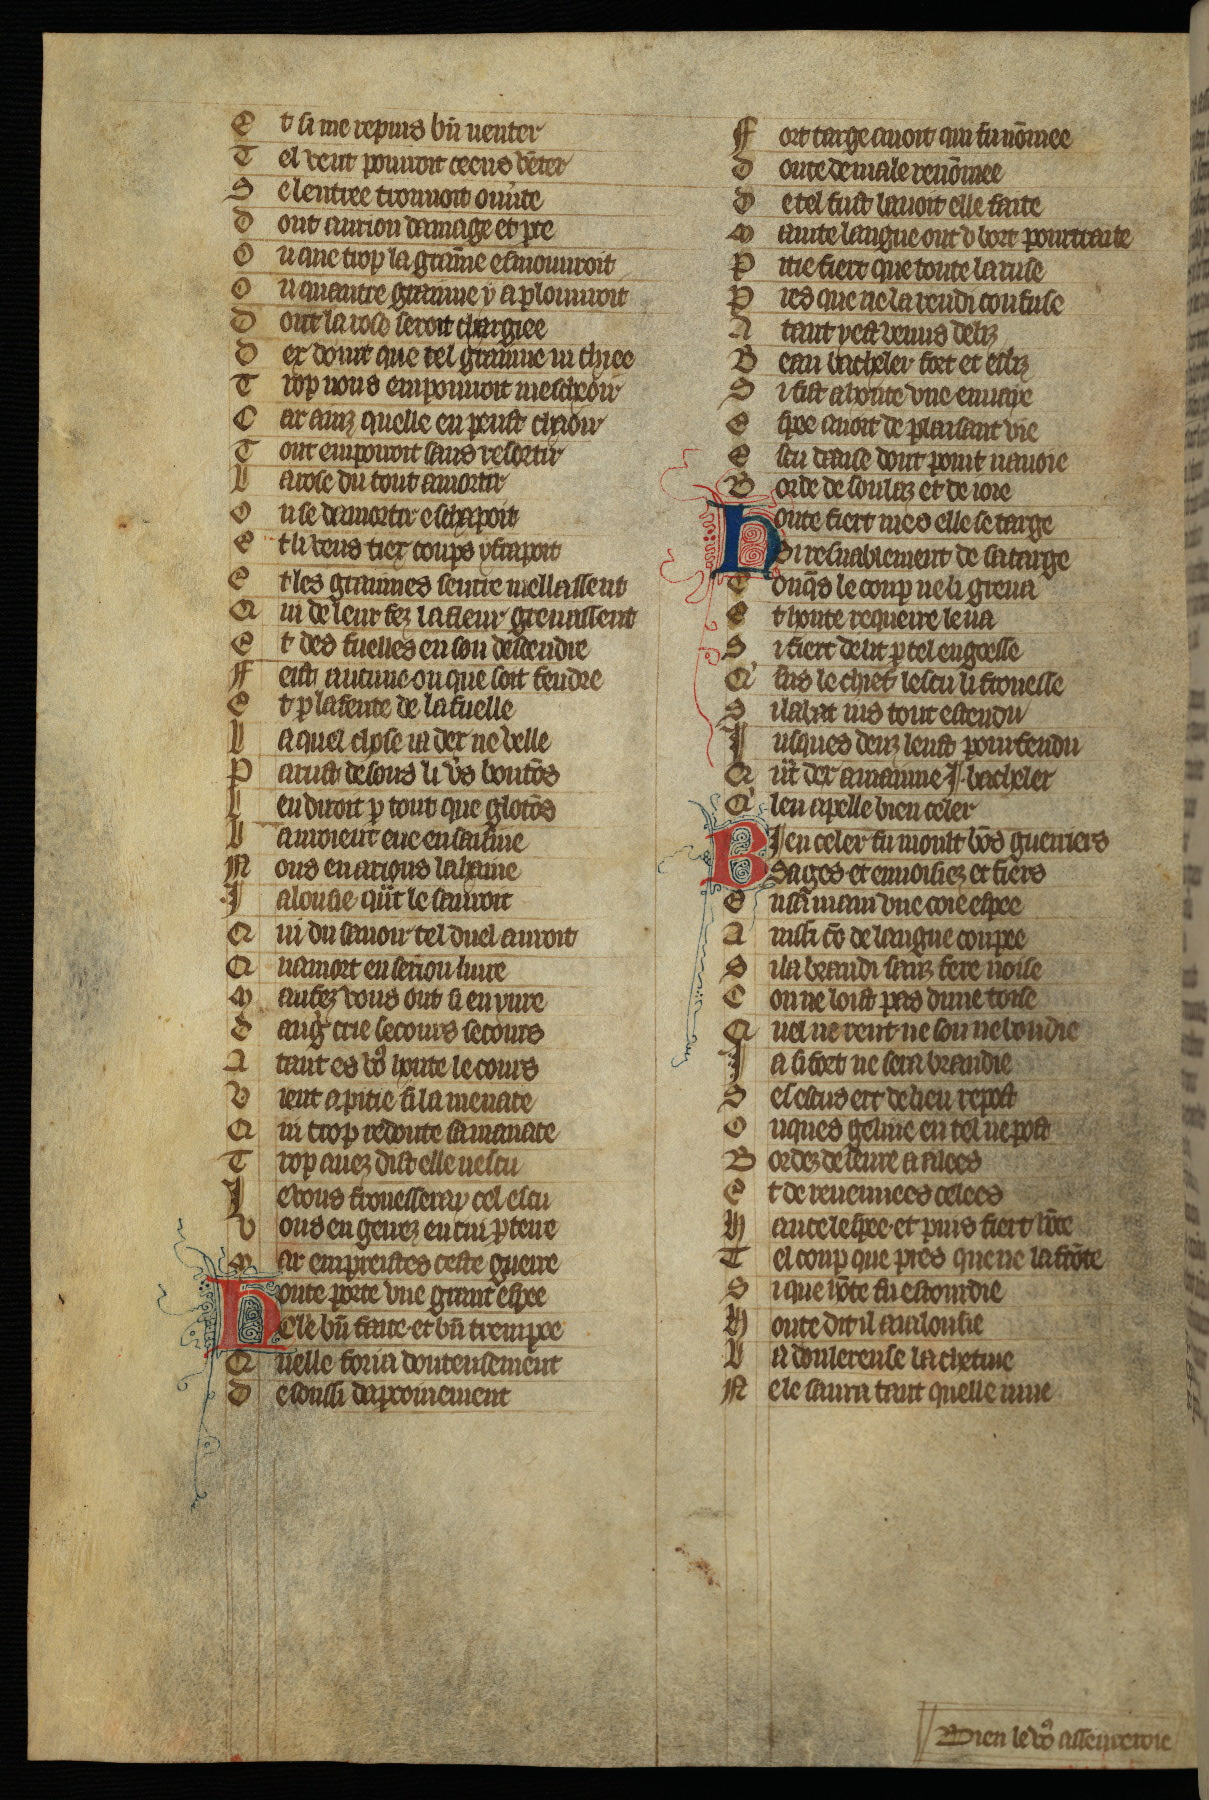 Et si me repuis bn̄ venter
Tel vent pouvoit ceens vēter
Se lentree trouvoit ouv̾te
Dont aurion damage et pte
Ou que trop la grainne esmouvroit
Ou quautre grainne y aplouvroit
Dont la rose seroit chargiee
Dex doint que tel grainne ni chiee
Trop nous empourroit mescheoir
Car ainz quelle en peust cheoir
Tout empouroit sans resortir
La rose du tout amortir
Ou se damortir eschapoit
Et li vens tiex coups y frapoit
Et les grainnes sentremellassent
Qui de leur fez la fleur grevassent
Et des fuelles en son descendre
Feist aucune ou que soit fendre
Et p la fente de la fuelle
Laquel chose ia dex ne velle
Parust desous li v̾s boutōs
Len diroit p tout que glotōs
Lauroient eue en saisine
Nous en arions la haine
Jalousie quīt le sauroit
Qui du savoir tel duel auroit
Qua mort en serion livre
Maufez vous ont si enyvre
Dang̾ crie secours secours
Atant es vo9 honte le cours
Vient a pitie si la menace
Qui trop redoute sa manace
Trop avez dist elle vescu
Je vous froisseray cel escu
Vous en gerrez en cui p terre
Mar empreistes ceste guerre
Honte porte une grant espee
Bele bn̄ faite et bn̄ trempee
Quelle forja douteusement
De soussi daproiuement
Fort targe avoit qui fu nōmee
Doute de male renōmee
De tel fust lavoit elle faite
Mainte langue ont ou bort pourtraite
Pitie fiert que toute la ruse
Pres que ne la rendi confuse
Atant y est venus deliz
Beau bacheler fort et esliz
Si fist a honte une envaye
Espee avoit de plaisant vie
Escu daise dont point navoie
Borde de soulaz et de ioie
Honte fiert mes elle se targe
Si resnablement de sa targe
Conq̄s le coup ne li greva
Et honte requerre le va
Si fiert delit p tel engoesse
Q̾ sus le chief lescu li frouesse
Si labat ius tout estendu
Jusques denz leust pourfendu
Qūt dex amainne .J. bacheler
Q̾ len apelle bien celer
Bien celer fu moult bōs guerriers
Sages et envoisiez et fiers
En sa main une coie espee
Aussi cō de langue coupee
Si la brandi sanz fere noise
Con ne loist pas dune toise
Quel ne rent ne son ne bondie
Ja si fort ne sera brandie
Ses escus ert de lieu repost
Onques geline en tel ne post
Bordez de seure alees
Et de revenues celees
Hauce lespee et puis fiert hōte
Tel coup que pres que ne la frōte
Si que hōte fu estourdie
Honte dit il ia ialousie
La doulereuse la chetive
Ne le saura tant quelle vive
Bien le vo9 asseureroie